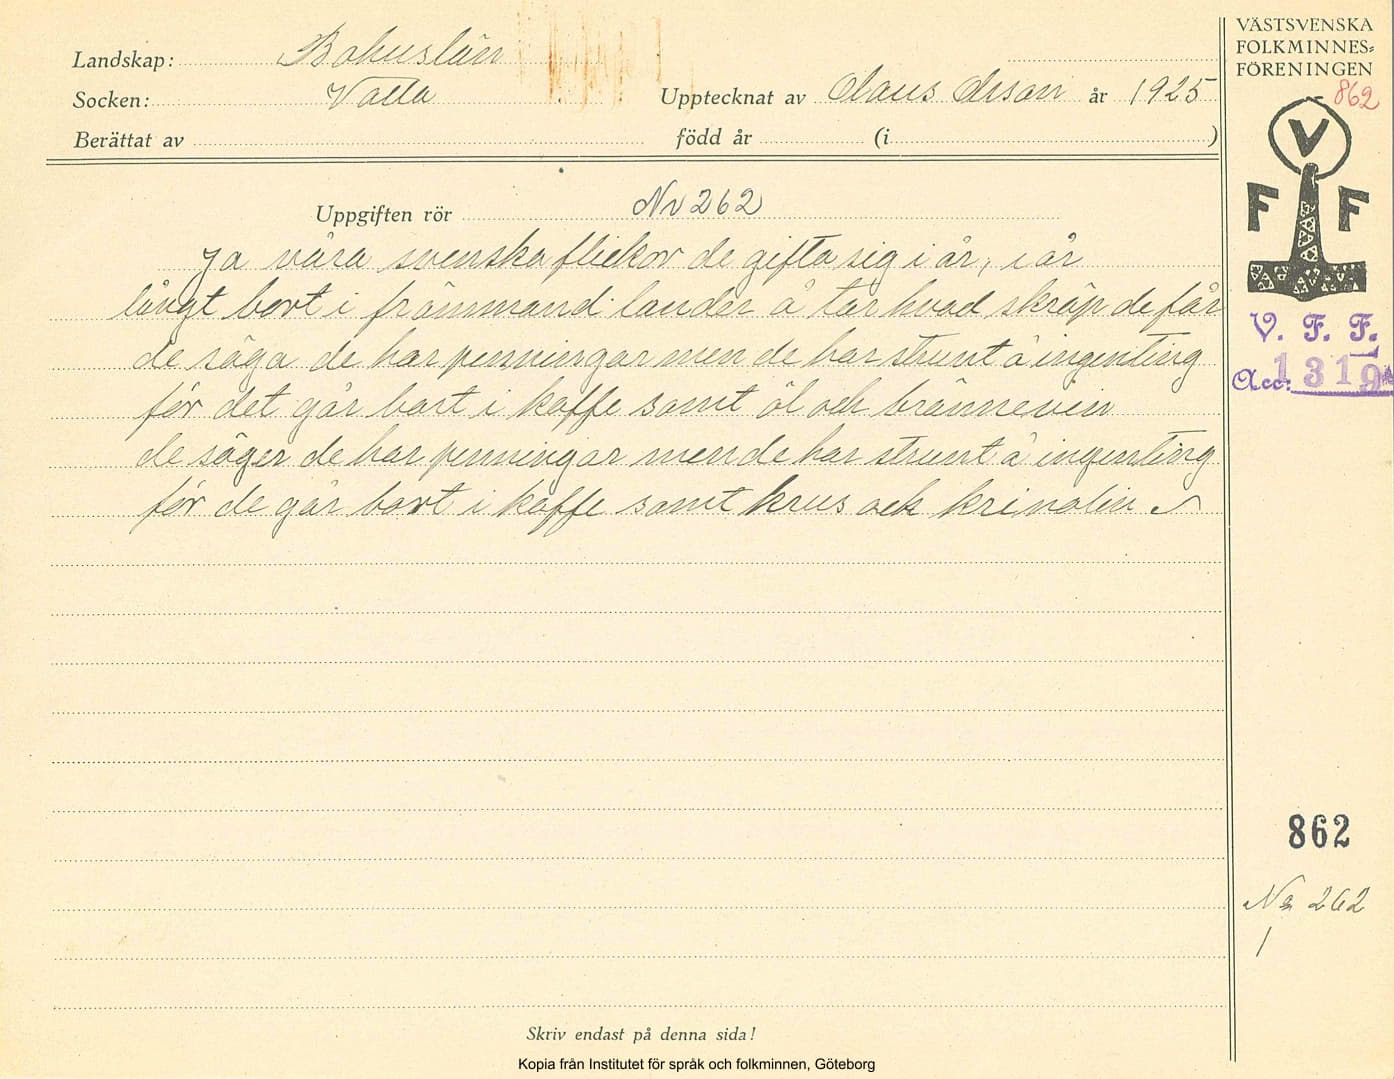 Landskap: Bohuslän
Socken: Valla
Upptecknat av Claus Olsson år 1925
Berättat av
född år (i )
Uppgiften rör Nr 262
Ja våra svenska flickor de gifta sig i år, i år
långt bort i främmand länder å tar hvad skräp de får
de säga de har penningar men de har strunt å ingenting
för det går bort i kaffe samt öl och brännevin
de säger de har penningar men de har strunt å ingenting
för de går bort i kaffe samt krus och krinolin
Skriv endast på denna sida!
Kopia från Institutet för språk och folkminnen, Göteborg
VÄSTSVENSKA
FOLKMINNES=
FÖRENINGEN
862
V
F F
V. F. F.
Acc: 1319
862
Nr 262
1